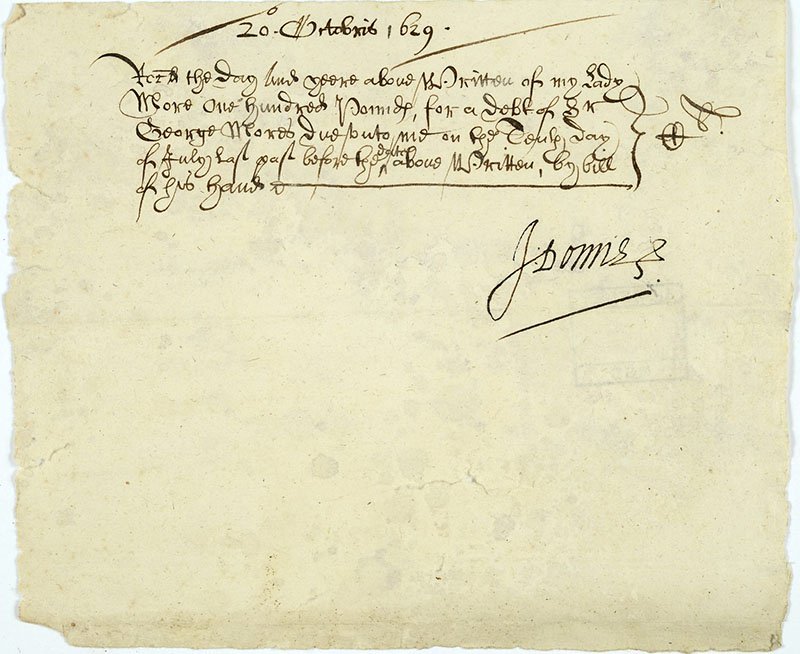 20º Octobris 1629.
Recd the day and yeere above written of my Lady
More one hundred Pounds, for a debt of Sr
George Mores due unto me on the Tenth day
of July last past before the date above written, by bill
of his hand
J: Donne